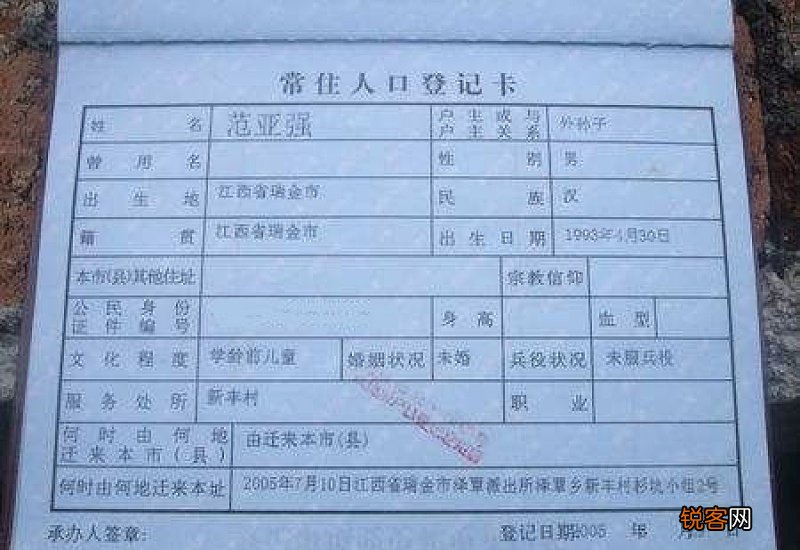 常住人口登记卡
姓名 范亚强 户主或与户主关系 外孙子
曾用名 性别 男
出生地 江西省瑞金市 民族 汉
籍贯 江西省瑞金市 出生日期 1993年4月30日
本市(县)其他住址 宗教信仰
公民身份证件编号 身高 血型
文化程度 学龄前儿童 婚姻状况 未婚 兵役状况 未服兵役
服务处所 新丰村 职业
何时由何地迁来本市(县) 由迁来本市(县)
何时由何地迁来本址 2005年7月10日江西省瑞金市泽覃派出所泽覃乡新丰村杉坑小组2号
承办人签章: 登记日期: 2005 年 月 日
锐客网